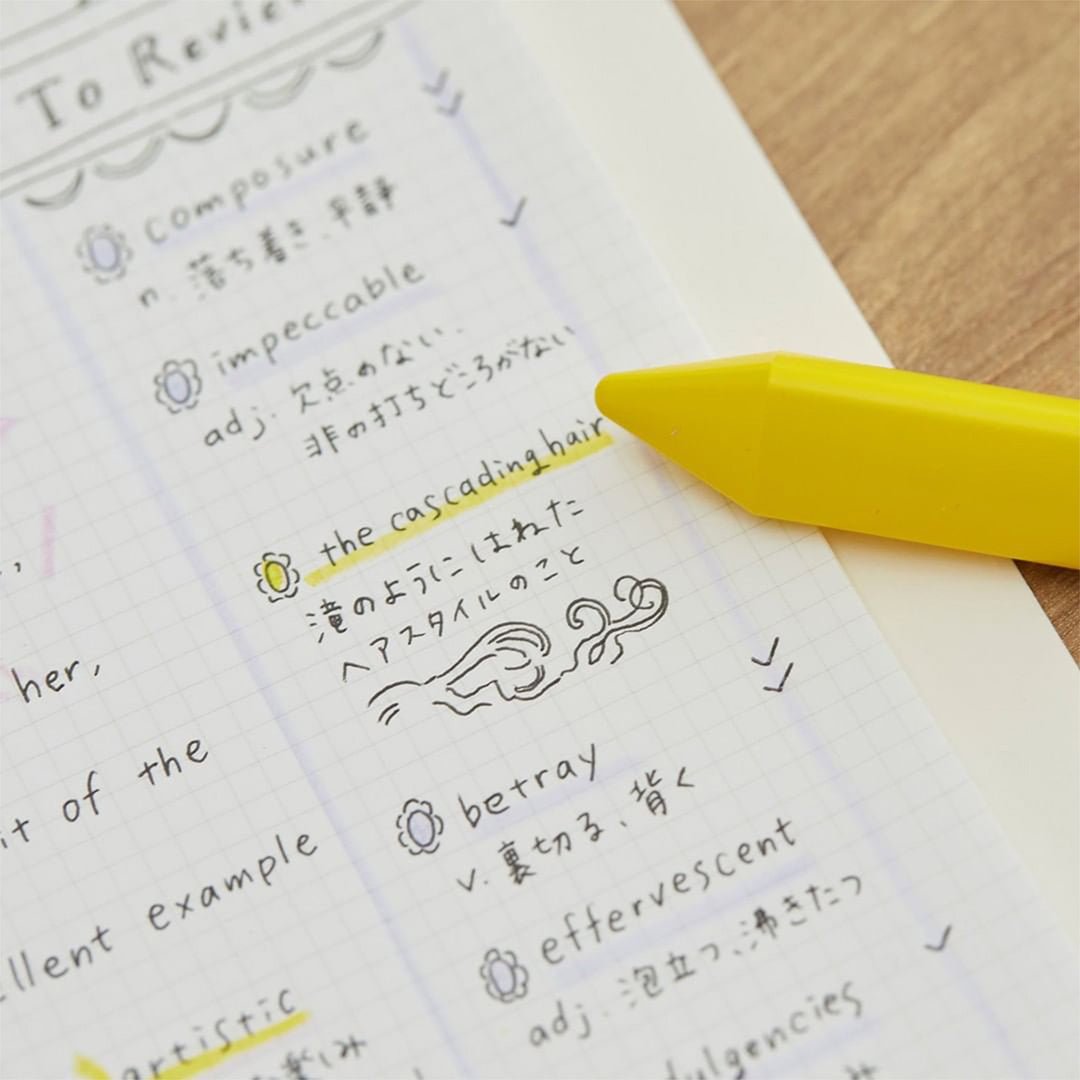 To Review
composure
n. 落ち着き、平静
impeccable
adj. 欠点のない.
非の打ちどころがない
the cascading hair
滝のようにはねた
ヘアスタイルのこと
betray
v. 裏切る、背く
effervescent
adj. 泡立つ、沸きたつ
dulgencies
her,
it of the
llent example
artistic